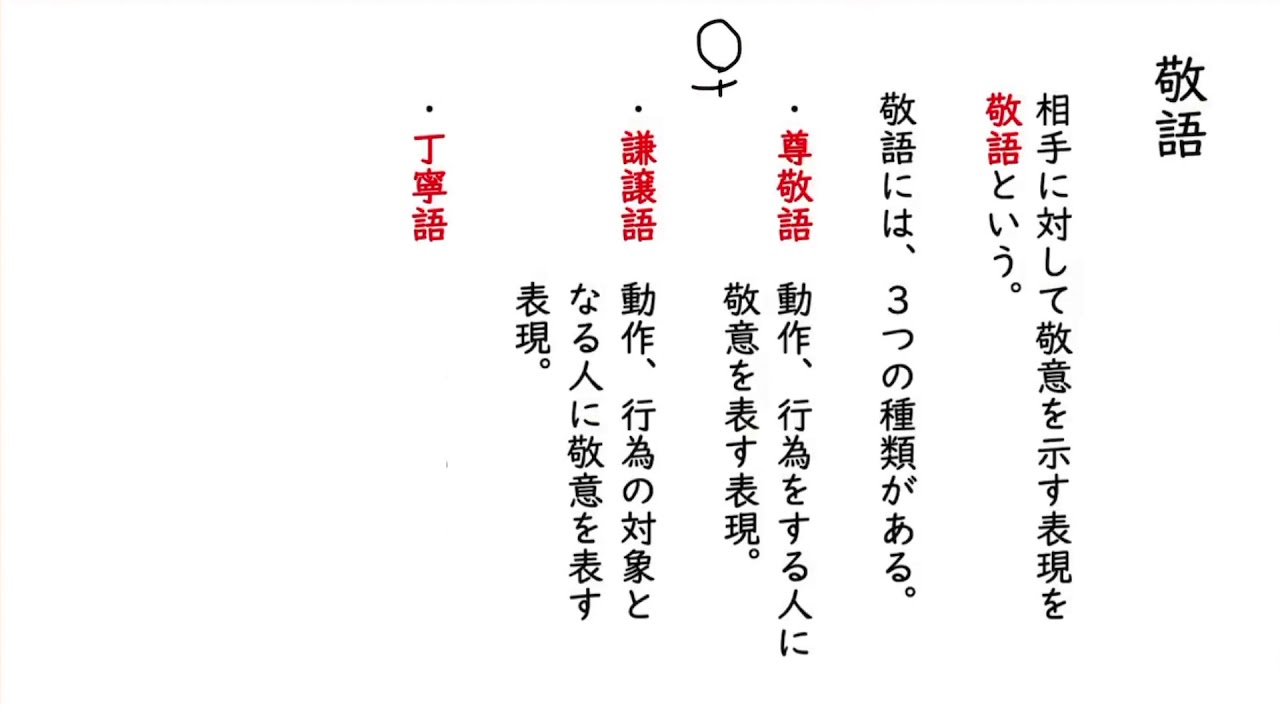 敬語
相手に対して敬意を示す表現を
敬語という。
敬語には、３つの種類がある。
・尊敬語　動作、行為をする人に
敬意を表す表現。
・謙譲語　動作、行為の対象と
なる人に敬意を表す
表現。
・丁寧語